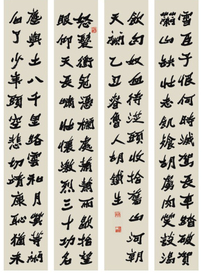 怒髮衝冠憑闌處瀟瀟雨歇抬望
眼仰天長嘯壯懷激烈三十功名
塵與土八千里路雲和月莫等閒
白了少年頭空悲切靖康恥猶未
雪臣子恨何時滅駕長車踏破賀
蘭山缺壯志飢餐胡虜肉笑談渴
飲匈奴血待從頭收拾舊山河朝
天闕乙丑春魯人胡鐵生